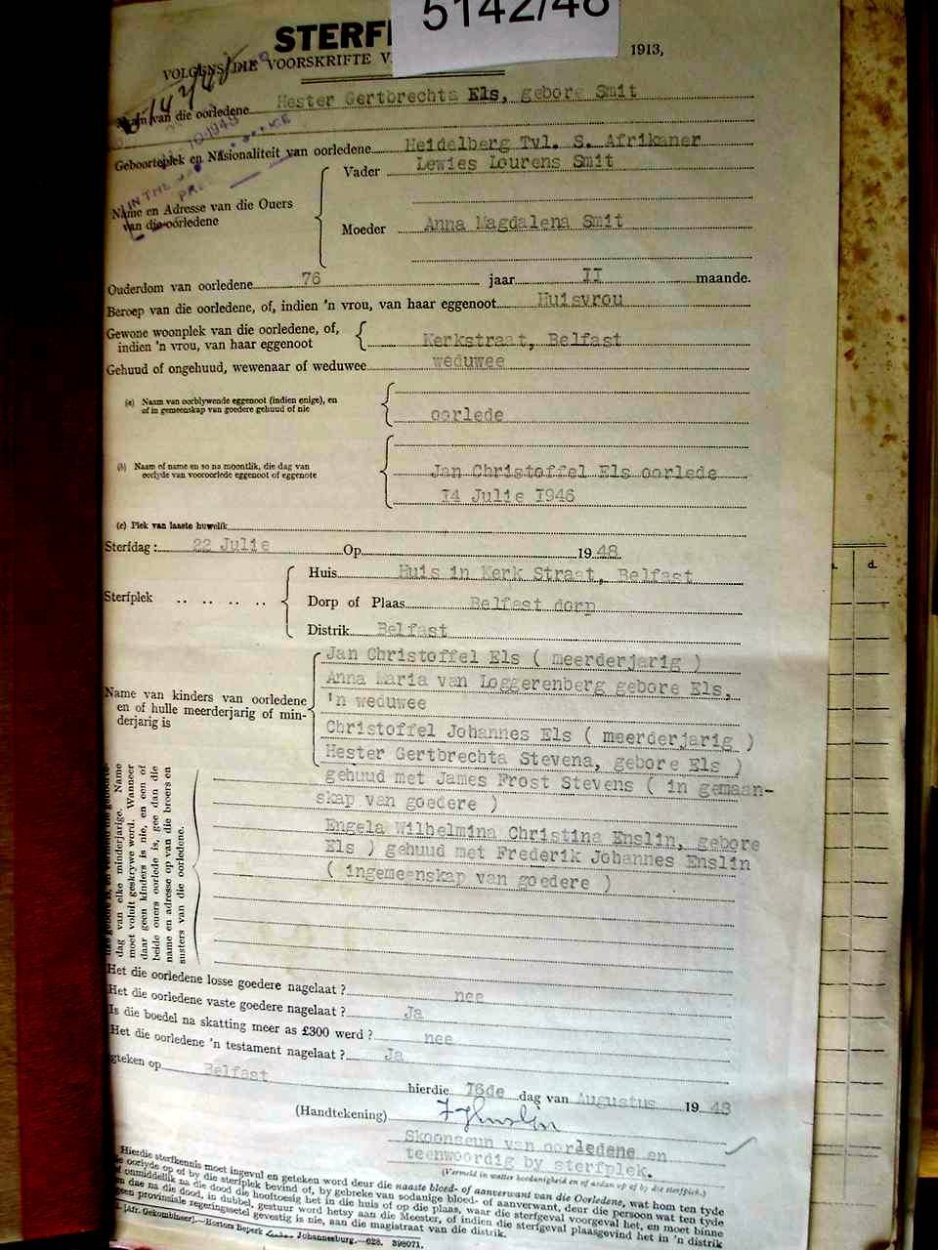 5142/48
STERF
VOLGENS DIE VOORSKRIFTE V 1913,
Naam van die oorledene Hester Gertbrechta Els, gebore Smit
IN THE
Geboorteplek en Nasionaliteit van oorledene Heidelberg Tvl. S. Afrikaner
Name en Adresse van die Ouers van die oorledene
Vader Lewies Lourens Smit
Moeder Anna Magdalena Smit
Ouderdom van oorledene 76 jaar II maande.
Beroep van die oorledene, of, indien 'n vrou, van haar eggenoot Huisvrou
Gewone woonplek van die oorledene, of,
indien 'n vrou, van haar eggenoot Kerkstraat, Belfast
Gehuud of ongehuud, wewenaar of weduwee weduwee
(a) Naam van oorblywende eggenoot (indien enige), en
of in gemeenskap van goedere gehuud of nie
oorlede
(b) Naam of name en so na moontlik, die dag van
oorlyde van vooroorlede eggenoot of eggenote
Jan Christoffel Els oorlede
I4 Julie I946
(c) Plek van laaste huwelik
Sterfdag: 22 Julie Op 19 48
Sterfplek
Huis Huis in Kerk Straat, Belfast
Dorp of Plaas Belfast dorp
Distrik Belfast
Name van kinders van oorledene
en of hulle meerderjarig of min-
derjarig is
Jan Christoffel Els ( meerderjarig )
Anna Maria van Loggerenberg gebore Els,
'n weduwee
Christoffel Johannes Els ( meerderjarig )
Hester Gertbrechta Stevena, gebore Els )
gehuud met James Frost Stevens ( in gemaan-
skap van goedere )
Engela Wilhelmina Christina Enslin, gebore
Els ) gehuud met Frederik Johannes Enslin
( ingemeenskap van goedere )
dag van elke minderjarige. Name
moet voluit geskrywe word. Wanneer
daar geen kinders is nie, en een of
beide ouers oorlede is, gee dan die
name en adresse op van die broers en
susters van die oorledene.
Het die oorledene losse goedere nagelaat ? nee
Het die oorledene vaste goedere nagelaat ? Ja
Is die boedel na skatting meer as £300 werd ? nee
Het die oorledene 'n testament nagelaat ? Ja
gteken op Belfast hierdie I6de dag van Augustus 19 48
(Handtekening) FJEnslin
Skoonseun van oorledene en
teenwoordig by sterfplek.
(Vermeld in watter hoedanigheid en of aldan op of by die sterfplek.)
Hierdie sterfkennis moet ingevul en geteken word deur die naaste bloed- of aanverwant van die Oorledene, wat hom ten tyde
oorlyde op of by die sterfplek bevind of, by gebreke van sodanige bloed- of aanverwant, deur die persoon wat ten tyde
onmiddellik na die dood die hooftoesig het in die huis of op die plaas, waar die sterfgeval voorgeval het, en moet binne
dae na die dood, in dubbel, gestuur word hetsy aan die Meester, of indien die sterfgeval plaasgevind het in 'n distrik
geen provinsiale regeringssetel gevestig is nie, aan die magistraat van die distrik.
(Afr. Gekombineer).—Hortors Beperk Johannesburg.—628. 398071.
d.